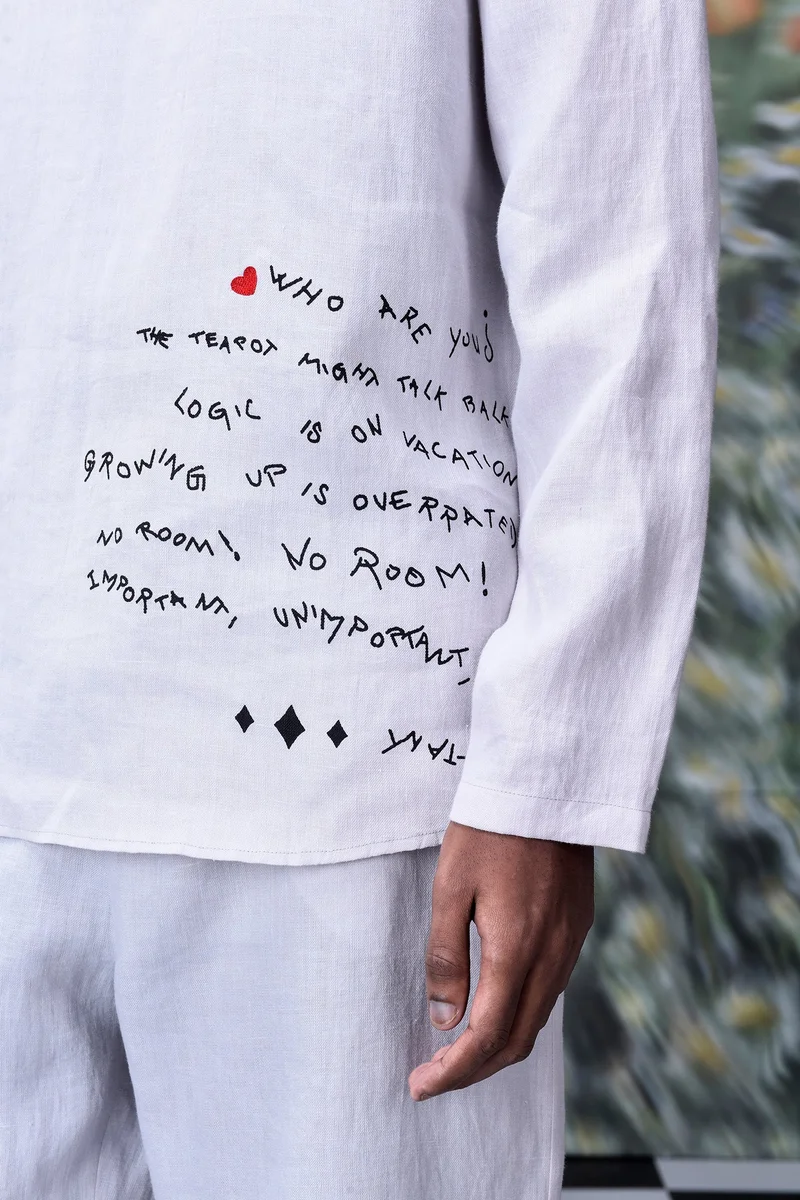 WHO ARE YOU¿
THE TEAPOT MIGHT TALK BACK
LOGIC IS ON VACATION
GROWING UP IS OVERRATED
NO ROOM! NO ROOM!
IMPORTANT, UNIMPORTANT,